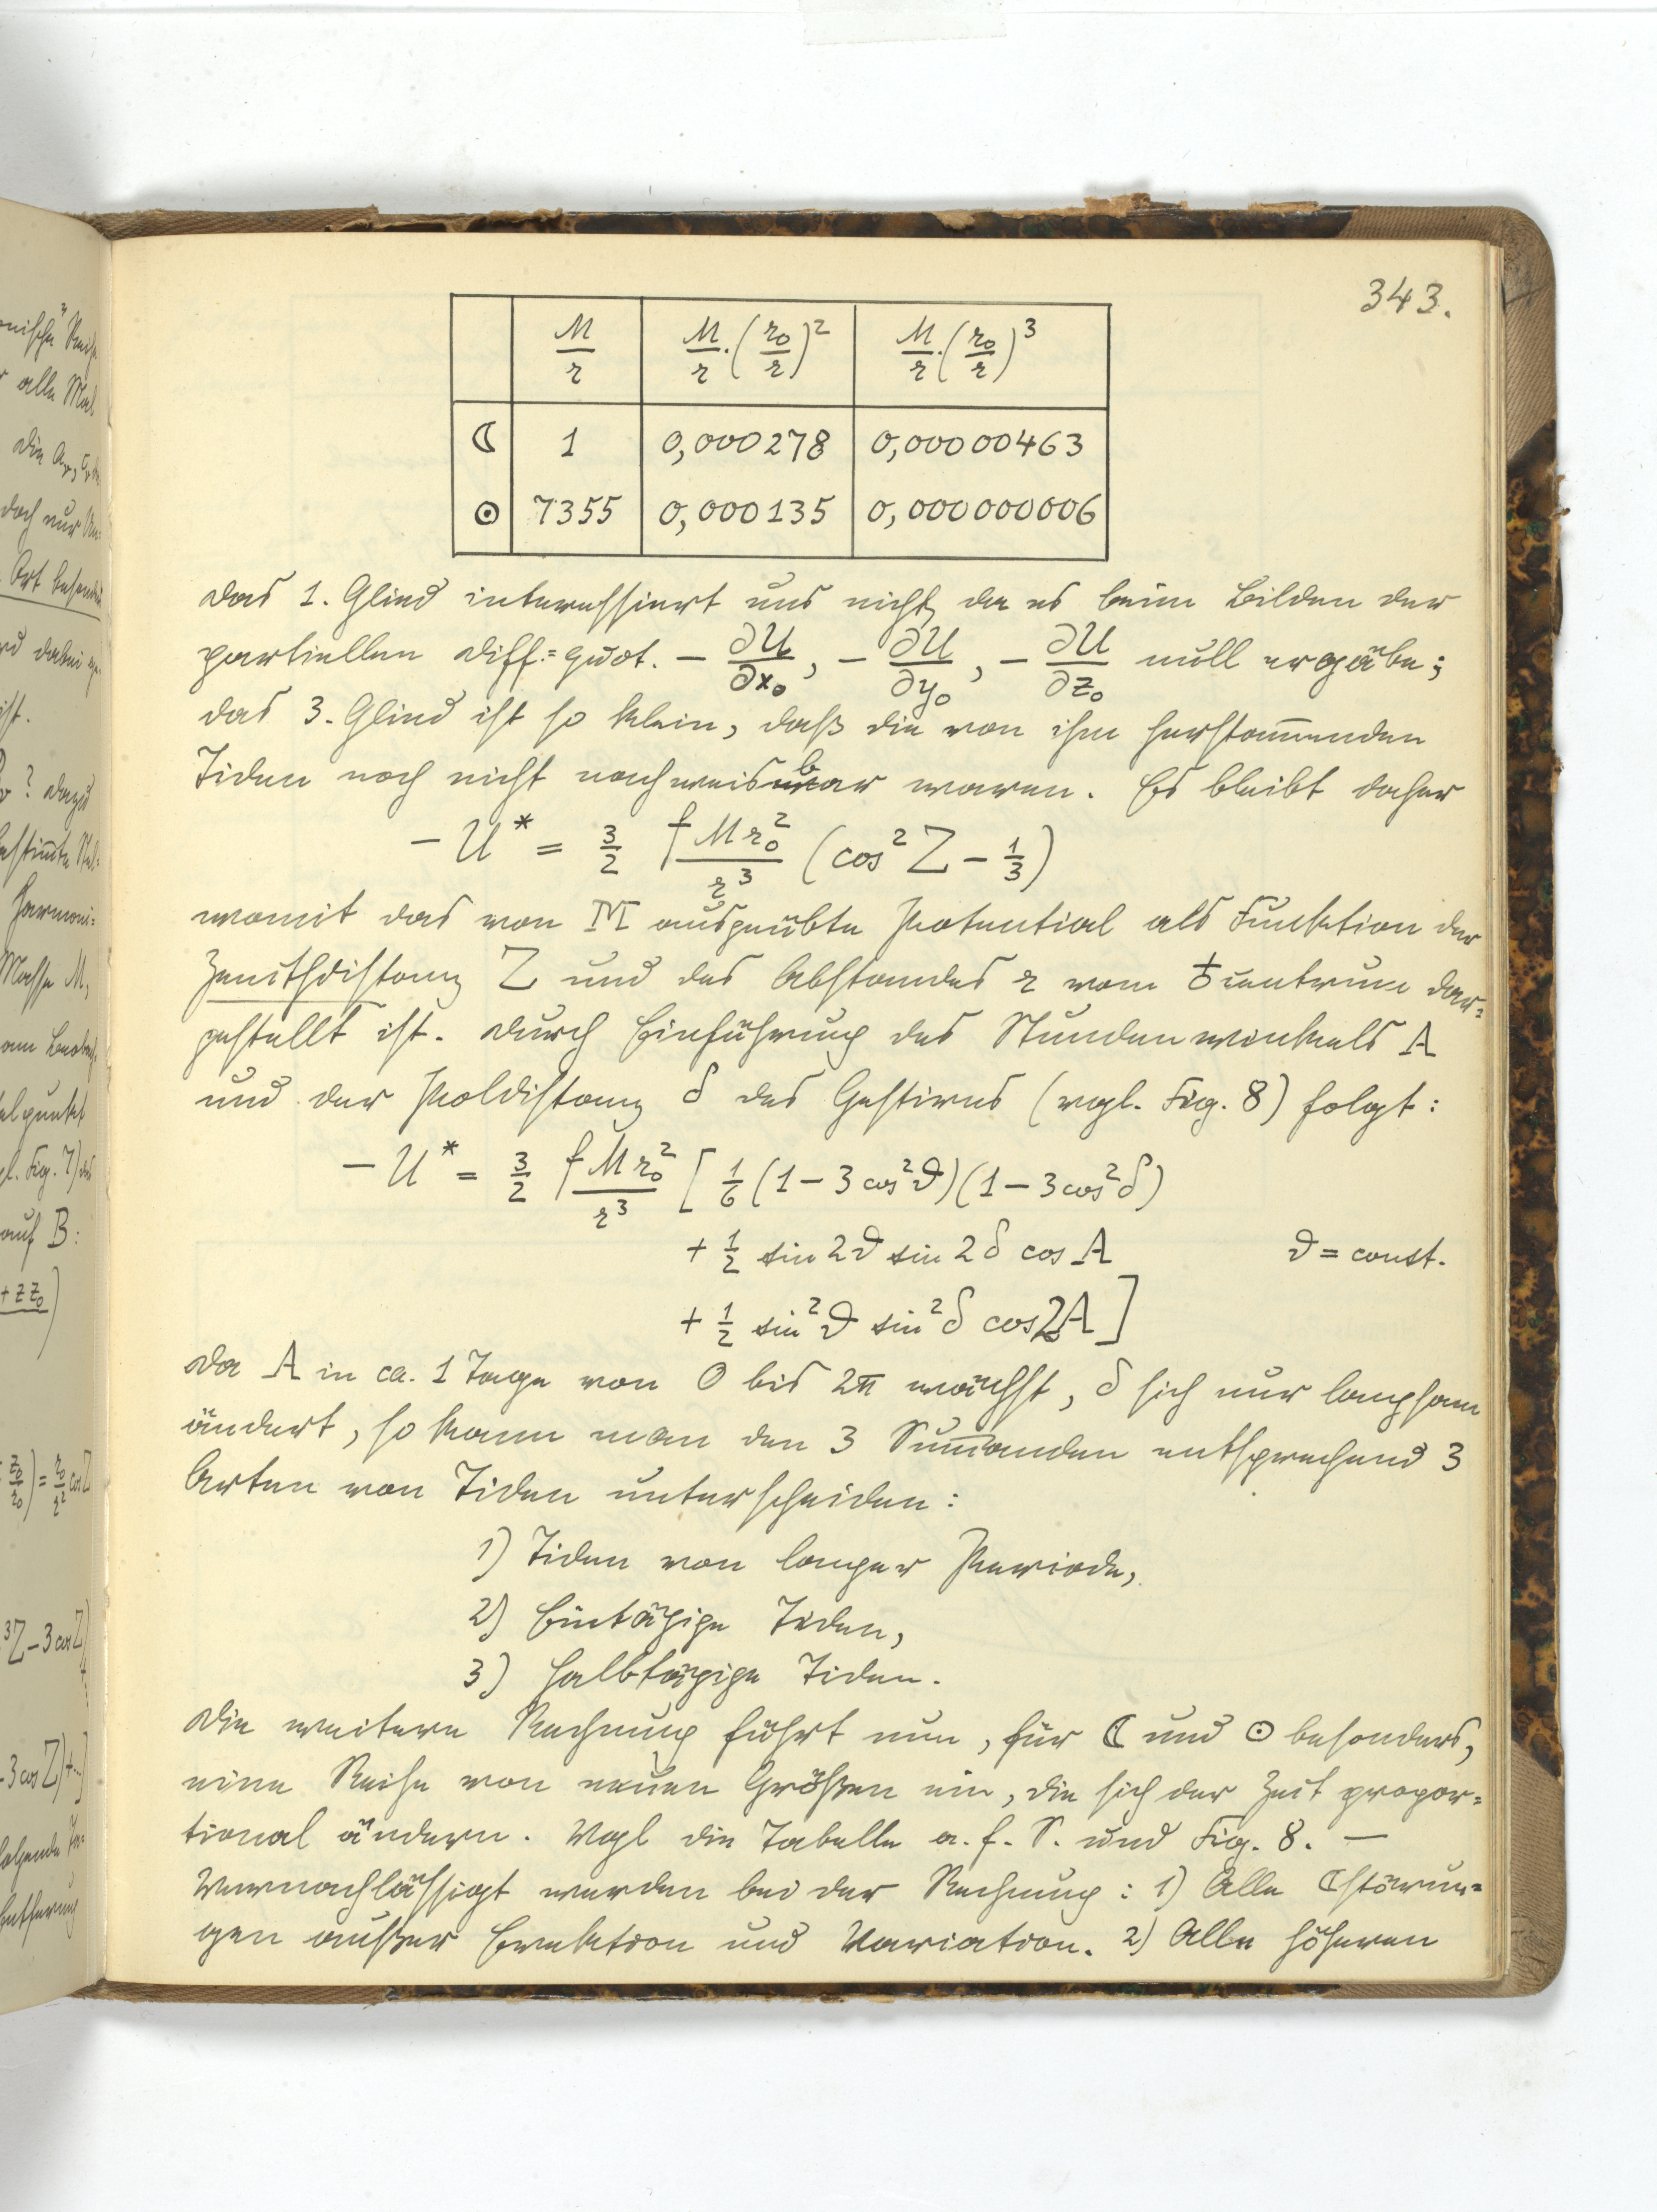 343.
M/r | M/r·(r₀/r)² | M/r·(r₀/r)³
☾ | 1 | 0,000278 | 0,00000463
☉ | 7355 | 0,000135 | 0,000000006
Das 1. Glied interessiert uns nicht, da es beim Bilden der
partiellen Diff.=quot. − ∂U/∂x₀, − ∂U/∂y₀, − ∂U/∂z₀ null ergäbe;
das 3. Glied ist so klein, daß die von ihm herstam̅enden
Tiden noch nicht nachweisbar waren. Es bleibt daher
− U* = 3/2 f M r₀²/r³ (cos² Z − 1/3)
womit das von M ausgeübte Potential als Funktion der
Zenithdistanz Z und des Abstandes r vom ♁zentrum dar=
gestellt ist. Durch Einführung des Stundenwinkels A
und der Poldistanz δ des Gestirns (vgl. Fig. 8) folgt:
− U* = 3/2 f M r₀²/r³ [ 1/6 (1 − 3 cos²ϑ)(1 − 3 cos²δ)
+ 1/2 sin 2ϑ sin 2δ cos A ϑ = const.
+ 1/2 sin²ϑ sin²δ cos 2A ]
Da A in ca. 1 Tage von 0 bis 2π wächst, δ sich nur langsam
ändert, so kann man den 3 Sum̅anden entsprechend 3
Arten von Tiden unterscheiden:
1) Tiden von langer Periode,
2) Eintägige Tiden,
3) Halbtägige Tiden.
Die weitere Rechnung führt nun, für ☾ und ☉ besonders,
eine Reihe von neuen Größen ein, die sich der Zeit propor=
tional ändern. Vgl die Tabelle a. f. S. und Fig. 8. —
Vernachlässigt werden bei der Rechnung: 1) Alle ☾störun=
gen außer Evektion und Variation. 2) Alle höheren